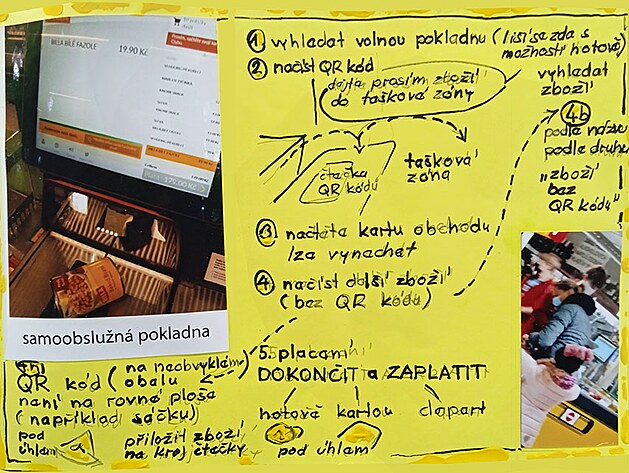 BILLA BÍLÉ FAZOLE 19.90 Kč
175.00 Kč
samoobslužná pokladna
1. vyhledat volnou pokladnu (liší se zda s
možností hotově)
2. načíst QR kód
dejte prosím zboží
do taškové zóny
čtečka
QR kódů
tašková
zóna
3. načtěte kartu obchodu
lza vynechat
4. načíst další zboží
(bez QR kódu)
vyhledat
zboží
4b
podle názvu
podle druhu
"zboží
bez
QR kódu"
QR kód (na neobvyklém
obalu
není na rovné ploše
(například sáčku)
pod
úhlem
přiložit zboží
na kraj čtečky
5. placení
DOKONČIT a ZAPLATIT
hotově kartou
pod úhlem